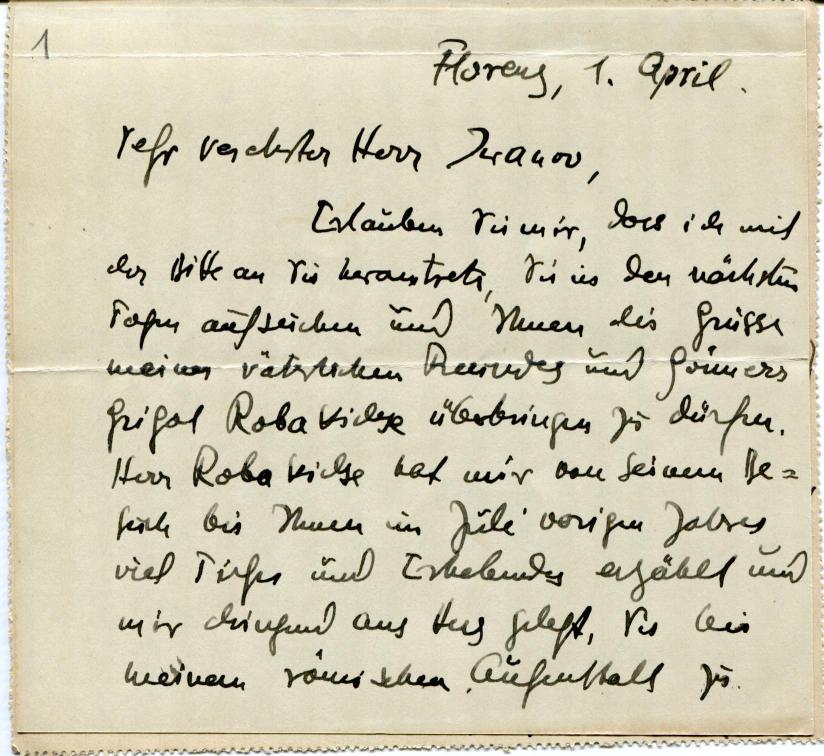 1
Florenz, 1. April.
Sehr verehrter Herr Iwanov,
Erlauben Sie mir, dass ich mit
der Bitte an Sie herantrete, Sie in den nächsten
Tagen aufsuchen und Ihnen die Grüsse
meines väterlichen Freundes und Gönners
Grigol Robakidse überbringen zu dürfen.
Herr Robakidse hat mir von seinem Be=
such bei Ihnen im Juli vorigen Jahres
viel Tiefes und Erhebendes erzählt und
mir dringend ans Herz gelegt, Sie bei
meinem römischen Aufenthalt zu